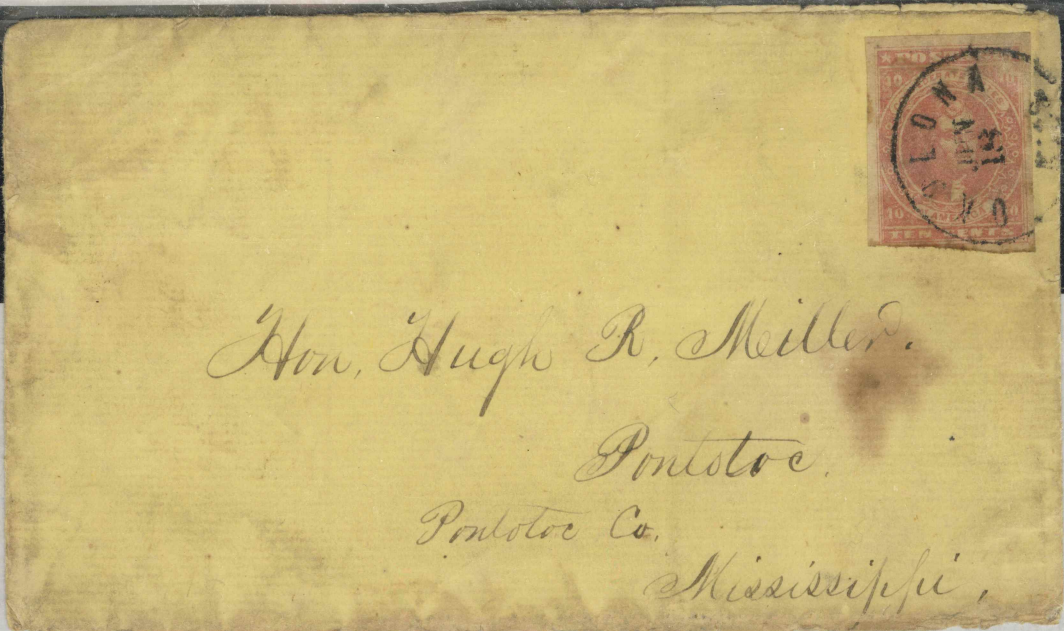 OKOLONA
10 10
10 10
TEN CENTS
Hon, Hugh R, Miller.
Pontotoc.
Pontotoc Co.
Mississippi,